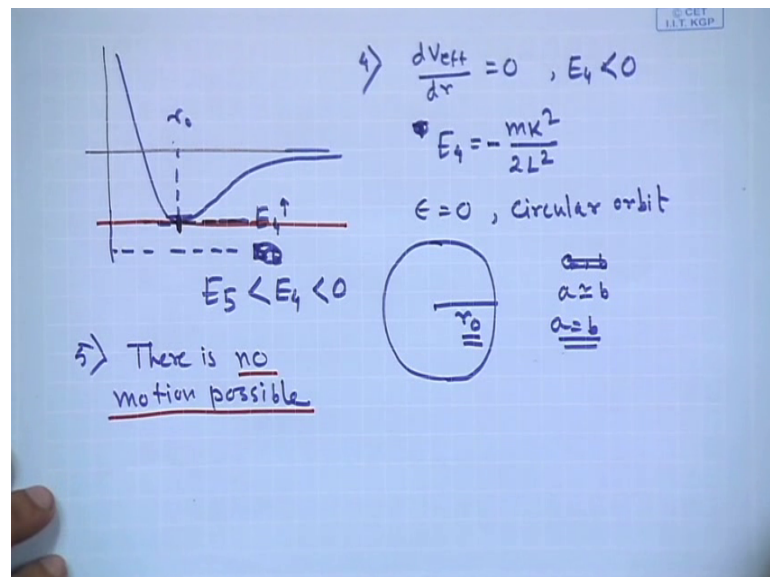 © CET
I.I.T. KGP
r₀
E₄ ↑
E₅ < E₄ < 0
5) There is no
motion possible
4) dVeff/dr = 0 , E₄ < 0
E₄ = - mk²/2L²
ϵ = 0 , circular orbit
r₀
a ≃ b
a = b